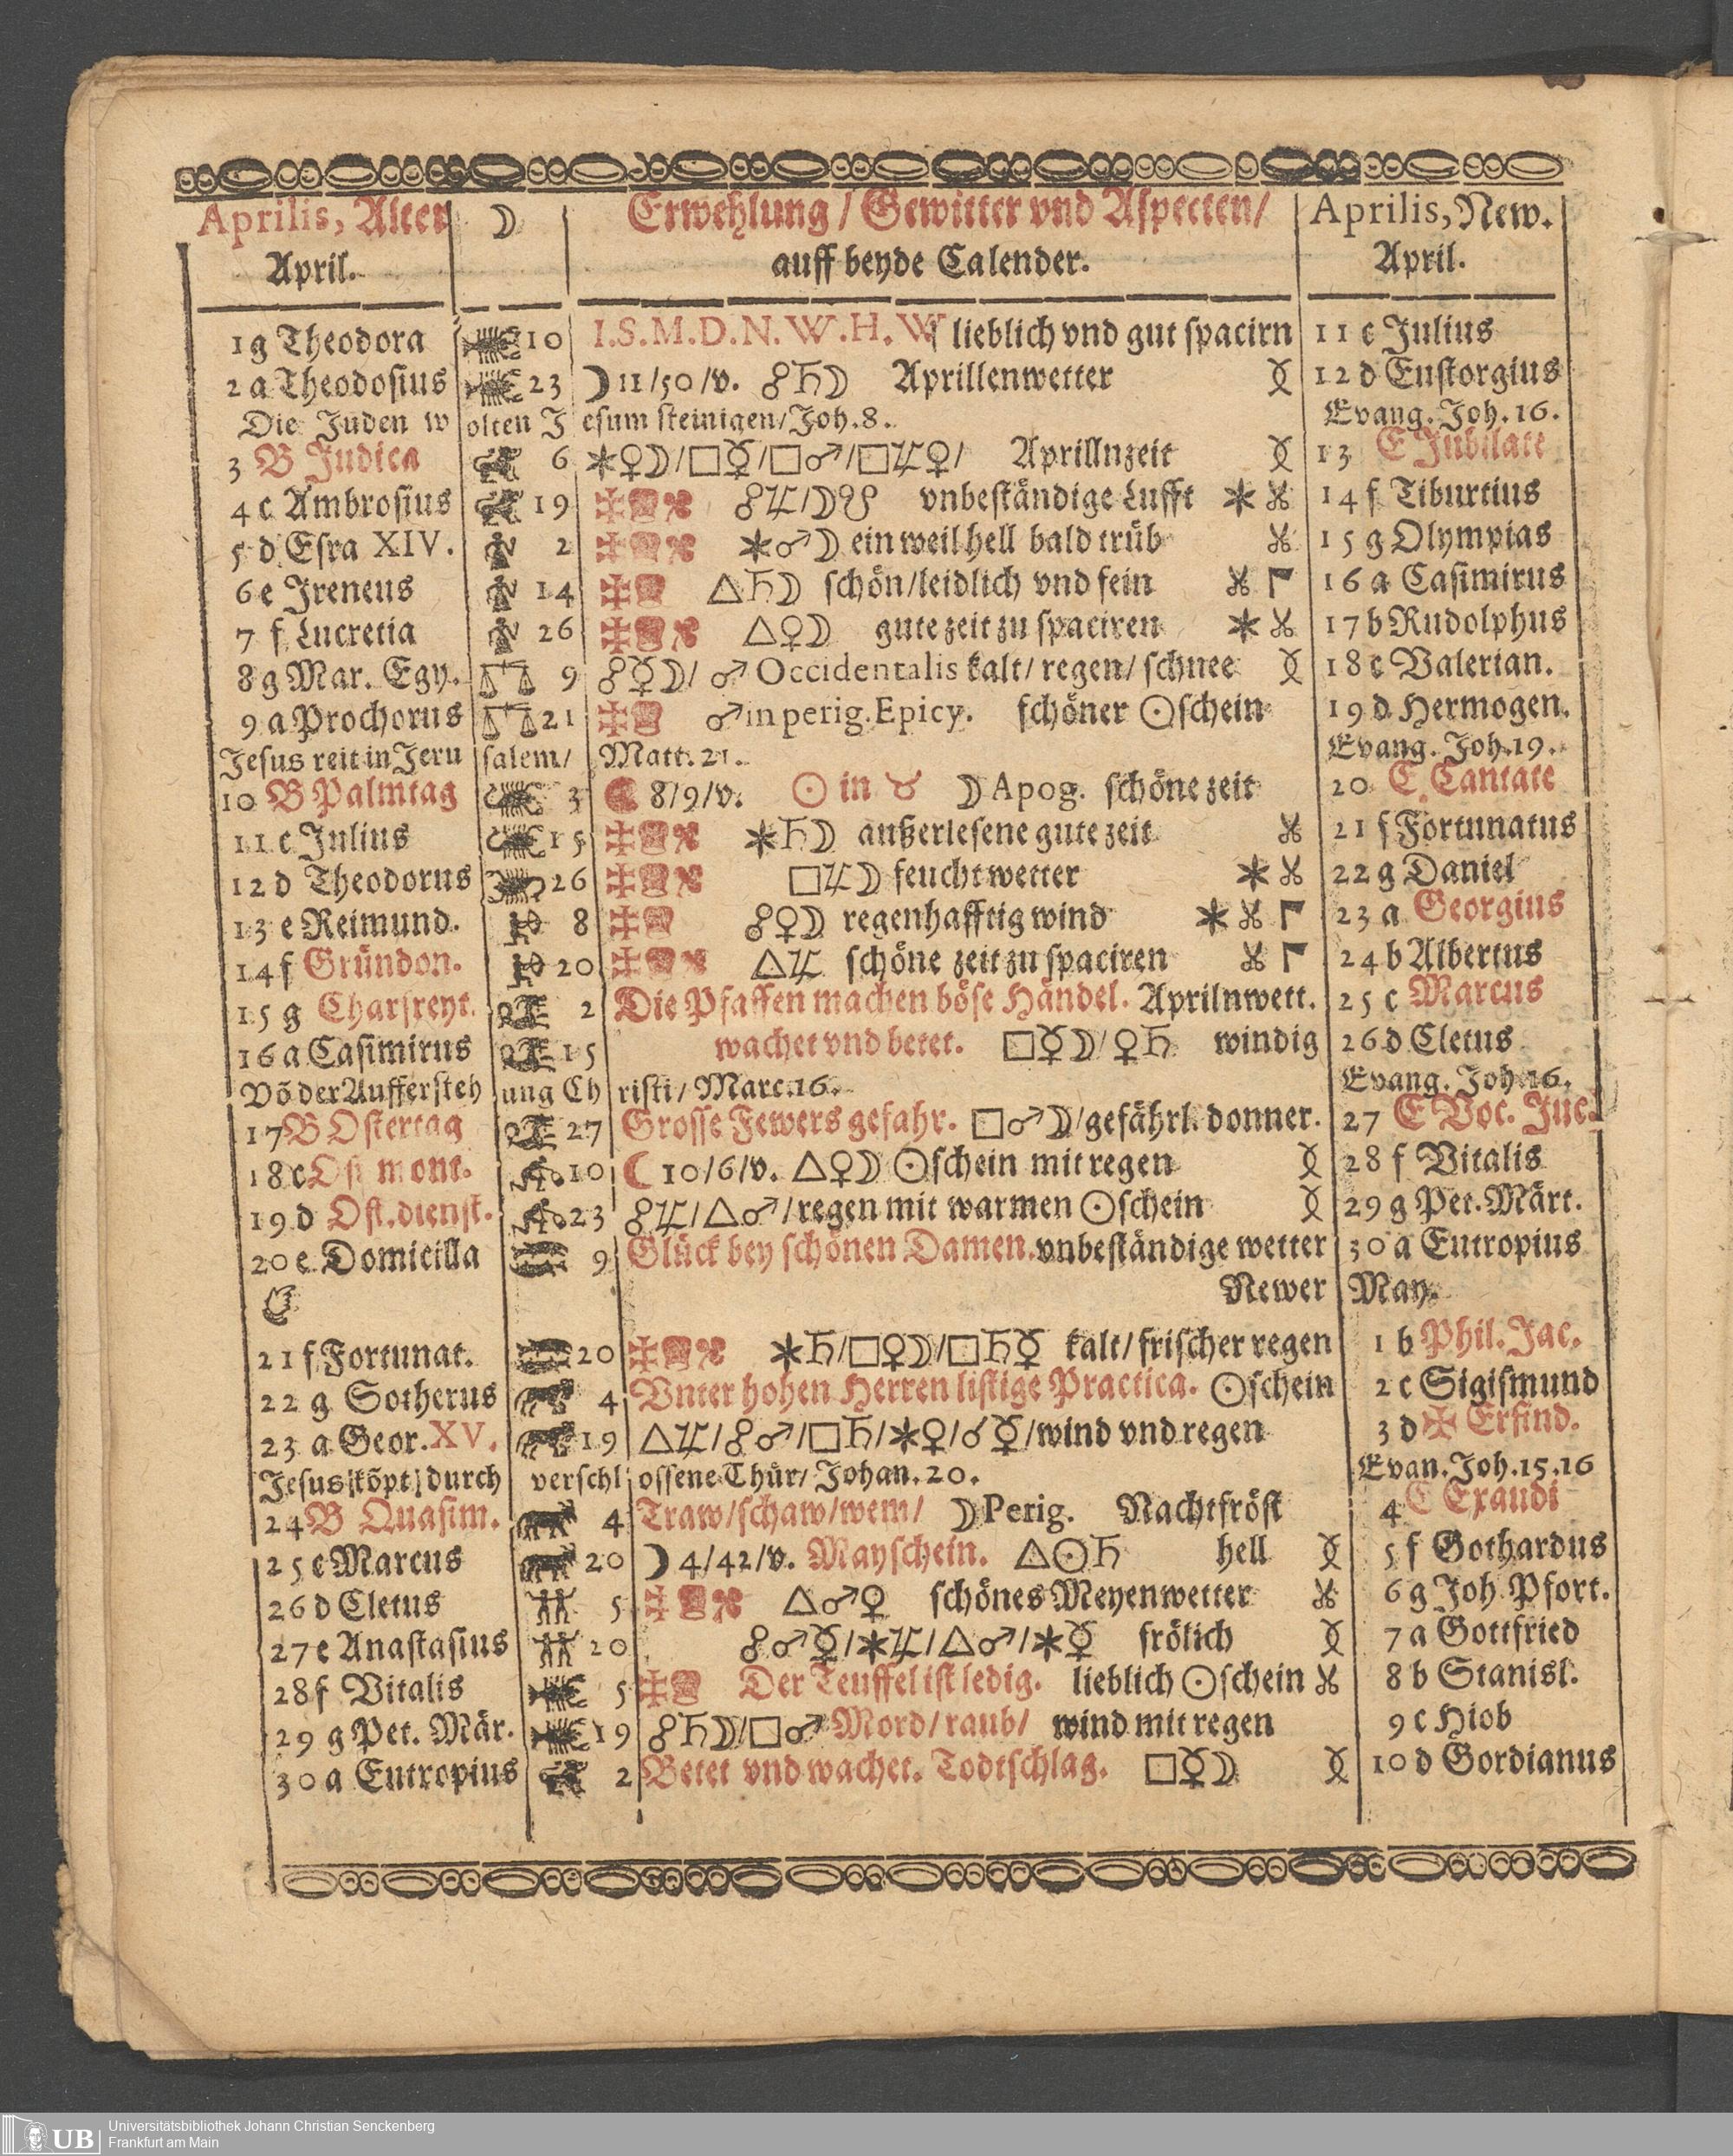 Aprilis, Alter ☽ Erwehlung / Gewitter vnd Aspecten / Aprilis, New.
April. auff beyde Calender. April.
1 g Theodora 10 I. S. M. D. N. W. H. W lieblich vnd gut spacirn 11 c Julius
2 a Theodosius 23 ☽ 11/50/v. ☍♄☽ Aprillenwetter 12 d Eustorgius
Die Juden wolten Jesum steinigen/Joh. 8. Evang. Joh. 16.
3 B Judica 6 ⚹♀☽/□☿/□♂/□♃♀/ Aprillnzeit 13 E Jubilate
4 c Ambrosius 19 ☍♃/☽☋ vnbeständige Lufft 14 f Tiburtius
5 d Esra XIV. 2 ⚹♂☽ ein weil hell bald trüb 15 g Olympias
6 e Ireneus 14 △♄☽ schön/leidlich vnd fein 16 a Casimirus
7 f Lucretia 26 △♀☽ gute zeit zu spaciren 17 b Rudolphus
8 g Mar. Egy. ♎ 9 ☍☿☽/ ♂ Occidentalis kalt/ regen/ schnee 18 c Valerian.
9 a Prochorus ♎ 21 ♂ in perig. Epicy. schöner ☉schein 19 d Hermogen.
Jesus reit in Jerusalem/ Matt. 21. Evang. Joh. 19.
10 B Palmtag 3 8/9/v. ☉ in ♉ ☽ Apog. schöne zeit 20 E Cantate
11 c Julius 15 ⚹♄☽ außerlesene gute zeit 21 f Fortunatus
12 d Theodorus 26 □♃☽ feucht wetter 22 g Daniel
13 e Reimund. 8 ☍♀☽ regenhafftig wind 23 a Georgius
14 f Gründon. 20 △♃ schöne zeit zu spaciren 24 b Albertus
15 g Charfreyt. 2 Die Pfaffen machen böse Händel. Aprilnwett. 25 c Marcus
16 a Casimirus 15 wachet vnd betet. □☿☽/♀♄ windig 26 d Cletus
Võ der Aufferstehung Christi/ Marc. 16. Evang. Joh. 16.
17 B Ostertag 27 Grosse Fewers gefahr. □♂☽/gefährl. donner. 27 E Voc. Juc.
18 c Ost mont. 10 ☾ 10/6/v. △♀☽ ☉schein mit regen 28 f Vitalis
19 d Ost. dienst. 23 ☍♃/△♂/regen mit warmen ☉schein 29 g Pet. Märt.
20 e Domicilla 9 Glück bey schönen Damen. vnbeständige wetter 30 a Eutropius
☞ Newer May.
21 f Fortunat. 20 ⚹♄/□♀☽/□♄☿ kalt/ frischer regen 1 b Phil. Jac.
22 g Sotherus 4 Vnter hohen Herren listige Practica. ☉schein 2 c Sigismund
23 a Geor. XV. 19 △♃/☍♂/□♄/⚹♀/☌☿/wind vnd regen 3 d ✠ Erfind.
Jesus kõpt durch verschlossene Thür/ Johan. 20. Evan. Joh. 15. 16
24 B Quasim. 4 Traw/schaw/wem/ ☽ Perig. Nachtfröst 4 E Exaudi
25 c Marcus 20 ☽ 4/42/v. Mayschein. △☉♄ hell 5 f Gothardus
26 d Cletus 5 △♂♀ schönes Meyenwetter 6 g Joh. Pfort.
27 e Anastasius 20 ☍♂☿/⚹♃/△♂/⚹☿ frölich 7 a Gottfried
28 f Vitalis 5 Der Teuffel ist ledig. lieblich ☉schein 8 b Stanisl.
29 g Pet. Mär. 19 ☍♄☽/□♂ Mord/ raub/ wind mit regen 9 c Hiob
30 a Eutropius 2 Betet vnd wachet. Todtschlag. □☿☽ 10 d Gordianus
UB Universitätsbibliothek Johann Christian Senckenberg
Frankfurt am Main